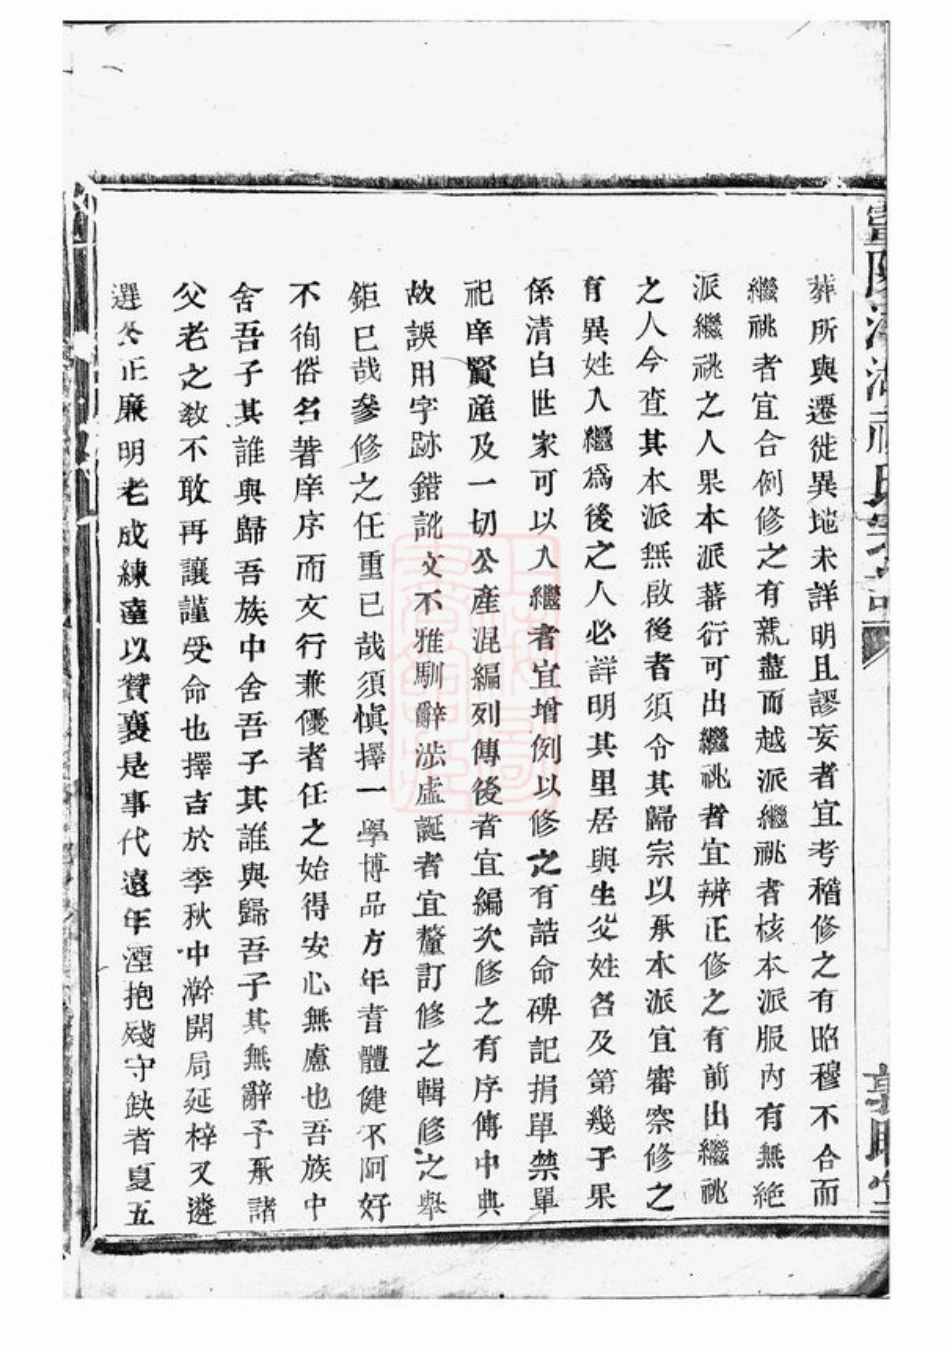 葬所與遷徙異地未詳明且謬妄者宜考稽修之有昭穆不合而
繼祧者宜合例修之有親盡而越派繼祧者核本派服內有無絶
派繼祧之人果本派蕃衍可出繼祧者宜辨正修之有前出繼祧
之人今查其本派無啟後者須令其歸宗以承本派宜審察修之
有異姓入繼爲後之人必詳明其里居與生父姓名及第幾子果
係清白世家可以入繼者宜增例以修之有誥命碑記捐單禁單
祀庠賢産及一切公産混編列傳後者宜編次修之有序傳中典
故誤用字跡錯訛文不雅馴辭涉虛誕者宜釐訂修之輯修之舉
鉅已哉參修之任重已哉須愼擇一學博品方年耆體健不阿好
不徇俗名著庠序而文行兼優者任之始得安心無慮也吾族中
舍吾子其誰與歸吾族中舍吾子其誰與歸吾子其無辭予承諸
父老之敎不敢再讓謹受命也擇吉於季秋中澣開局延梓又遴
選公正廉明老成練達以贊襄是事代遠年湮抱殘守缺者夏五